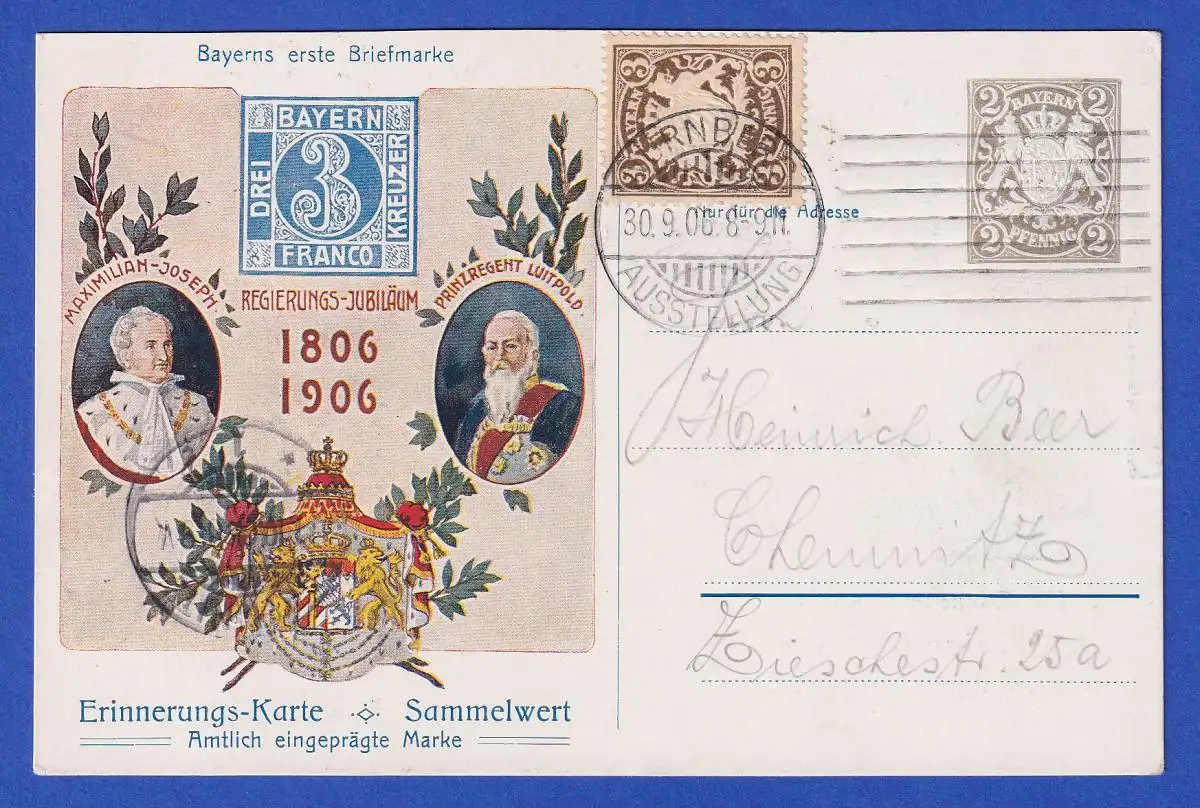 Bayerns erste Briefmarke
BAYERN
DREI
3
KREUZER
FRANCO
MAXIMILIAN-JOSEPH.
REGIERUNGS-JUBILÄUM
PRINZREGENT LUITPOLD.
1806
1906
Erinnerungs-Karte Sammelwert
Amtlich eingeprägte Marke
3 3
3 3
30.9.06.8-9N.
AUSSTELLUNG
Nur für die Adresse
2 BAYERN 2
2 PFENNIG 2
Heinrich Beer
Chemnitz
Zieschestr. 25a